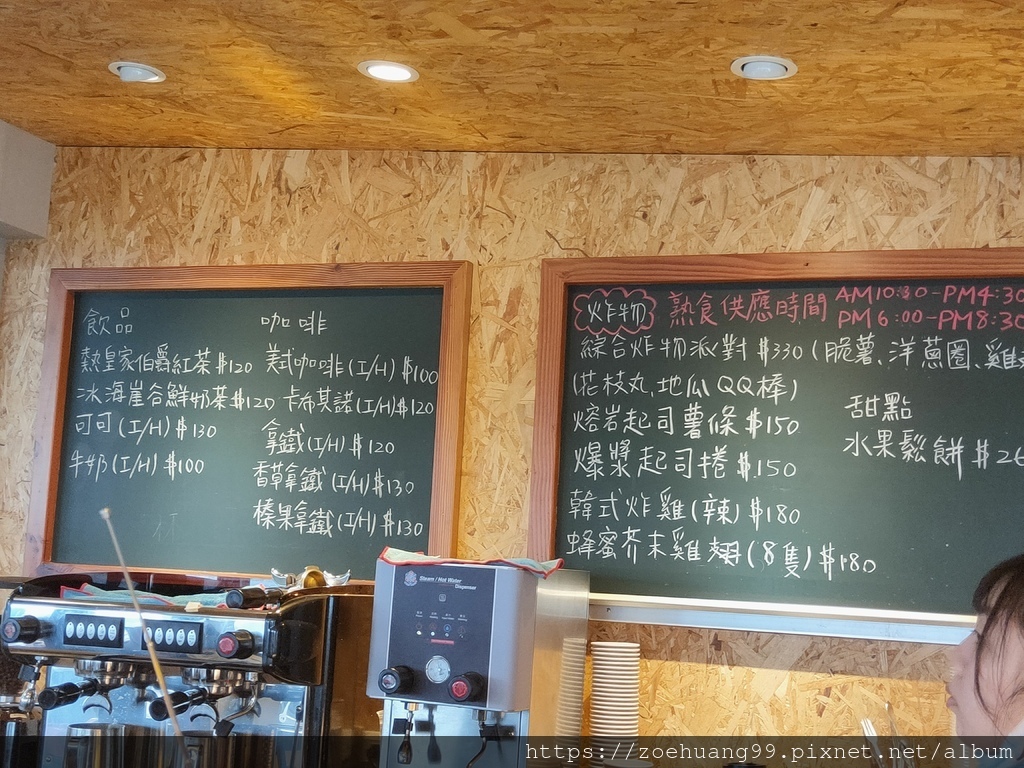 飲品
熱皇家伯爵紅茶$120
冰海崖谷鮮奶茶$120
可可(I/H)$130
牛奶(I/H)$100
咖啡
美式咖啡(I/H)$100
卡布其諾(I/H)$120
拿鐵(I/H)$120
香草拿鐵(I/H)$130
榛果拿鐵(I/H)$130
炸物 熟食供應時間 AM10:30-PM4:30
PM6:00-PM8:30
綜合炸物派對 $330(脆薯、洋蔥圈、雞
(花枝丸、地瓜QQ棒)
熔岩起司薯條$150
爆漿起司捲$150
韓式炸雞(辣)$180
蜂蜜芥末雞翅(8隻)$180
甜點
水果鬆餅$26
Steam / Hot Water
Dispenser
https://zoehuang99.pixnet.net/album